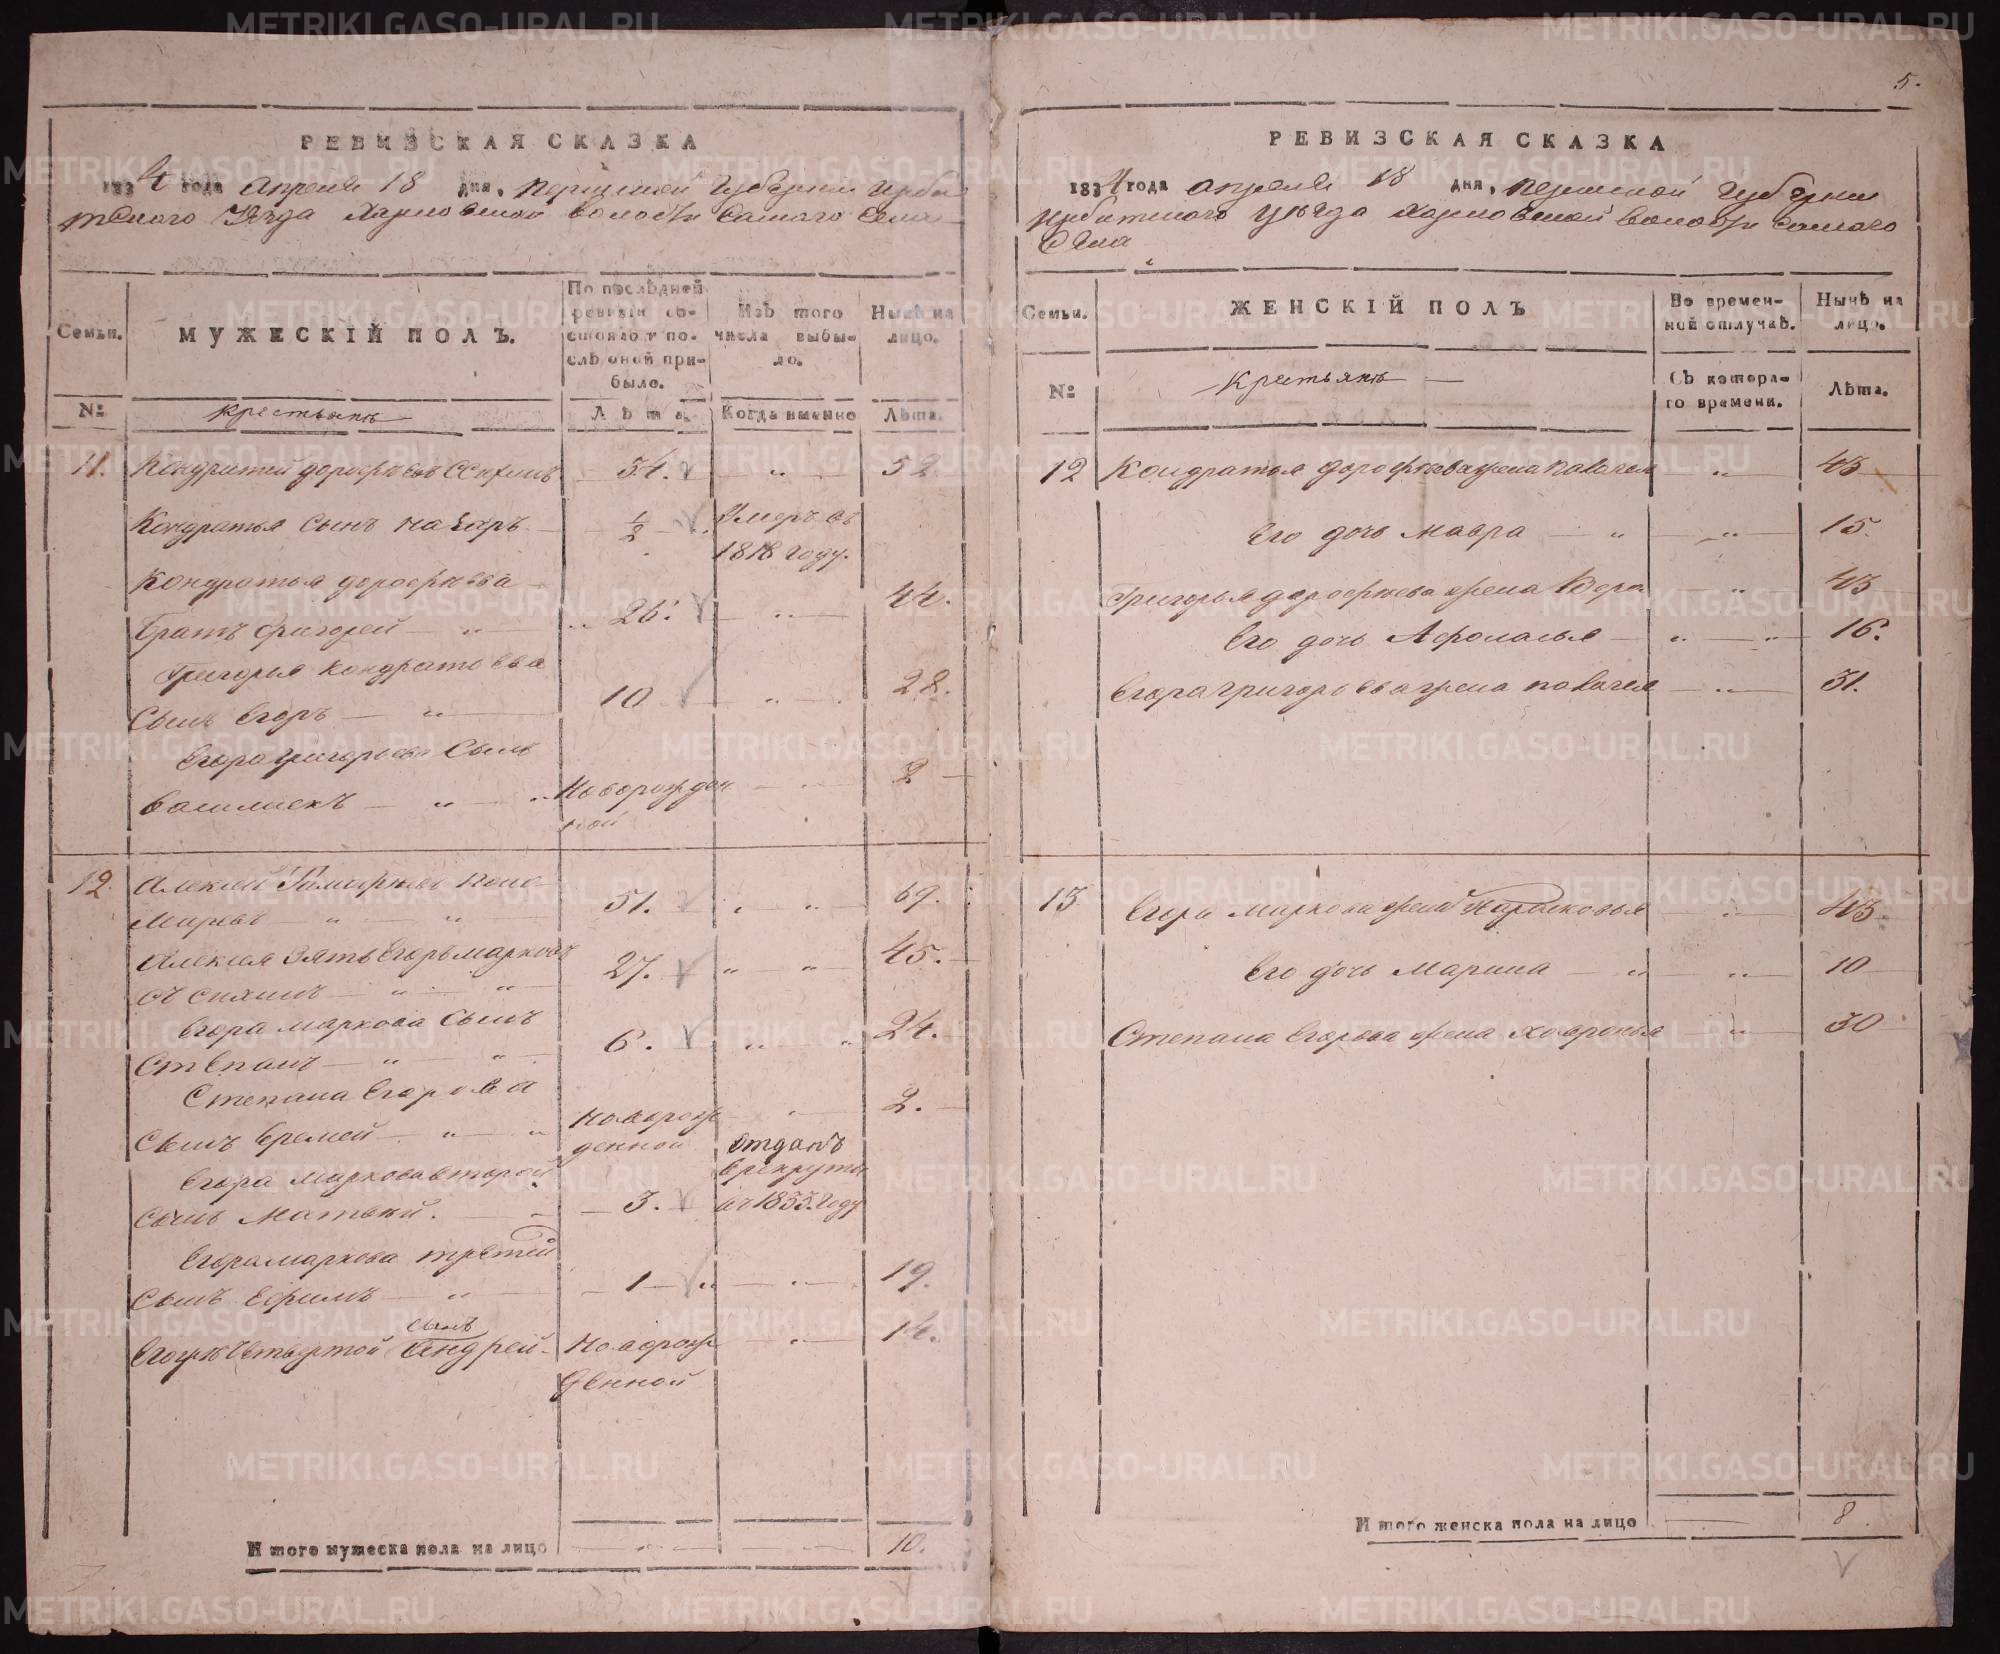 5.
РЕВИЗСКАЯ СКАЗКА
1834 года Апреля 18 дня, Пермской Губернии Ирби
тского Уѣзда Харловской волости самаго села
Семьи.
МУЖЕСКІЙ ПОЛЪ.
По послѣдней ревизіи состояло и послѣ оной прибыло.
Изъ того числа выбыло.
Нынѣ на лицо.
№
Крестьянъ
Лѣта.
Когда именно
Лѣта.
11. Кондратей дорофѣевъ 34. „ 52
Кондратья сынъ Назаръ ½ Умеръ въ
1818 году.
Кондратья дорофѣева
братъ Григорей „ 26. „ 44.
Григорья Кондратовва
Сынъ Егоръ „ 10 „ 28.
Егора григорьева Сынъ
василиск „ Новорожден
ной 2
12. Алексей Поно-
маревъ „ „ 51. „ „ 69.
Алексея Зять Егоръ марковъ
„ „ 27. „ „ 45.
Егора маркова Сынъ
Степанъ „ „ 6. „ „ 24.
Степана Егорова
Сынъ Еремей „ „ Новорож
денной „ 2.
Егора Маркова второй
Сынъ Матвей. 3. отданъ
в рекруты
въ 1833. году
Егора маркова третей
Сынъ Ефимъ „ 1 „ 19.
сынъ
Егоръ четвертой Андрей Новорож
денной „ 14.
Итого мужеска пола на лицо 10.
РЕВИЗСКАЯ СКАЗКА
1834 года апреля 18 дня, пермской Губернии
ирбитского уѣзда харловской волости самаго
села
Семьи.
ЖЕНСКІЙ ПОЛЪ
Во временной отлучкѣ.
Нынѣ на лицо.
№
Крестьянъ
Съ котораго времени.
Лѣта.
12 Кондратья дорофѣева жена Палагея „ 43
Его дочь мавра „ „ 15.
Григорья дорофѣева жена Вера „ 43
Его дочь Афонасья „ „ 16.
Егора григорьева жена палагея „ 31.
13 Егора маркова жена Парасковья „ 43.
Его дочь Марина „ „ 10
Степана Егорова жена Хавронья „ 30
Итого женска пола на лицо 8
METRIKI.GASO-URAL.RU